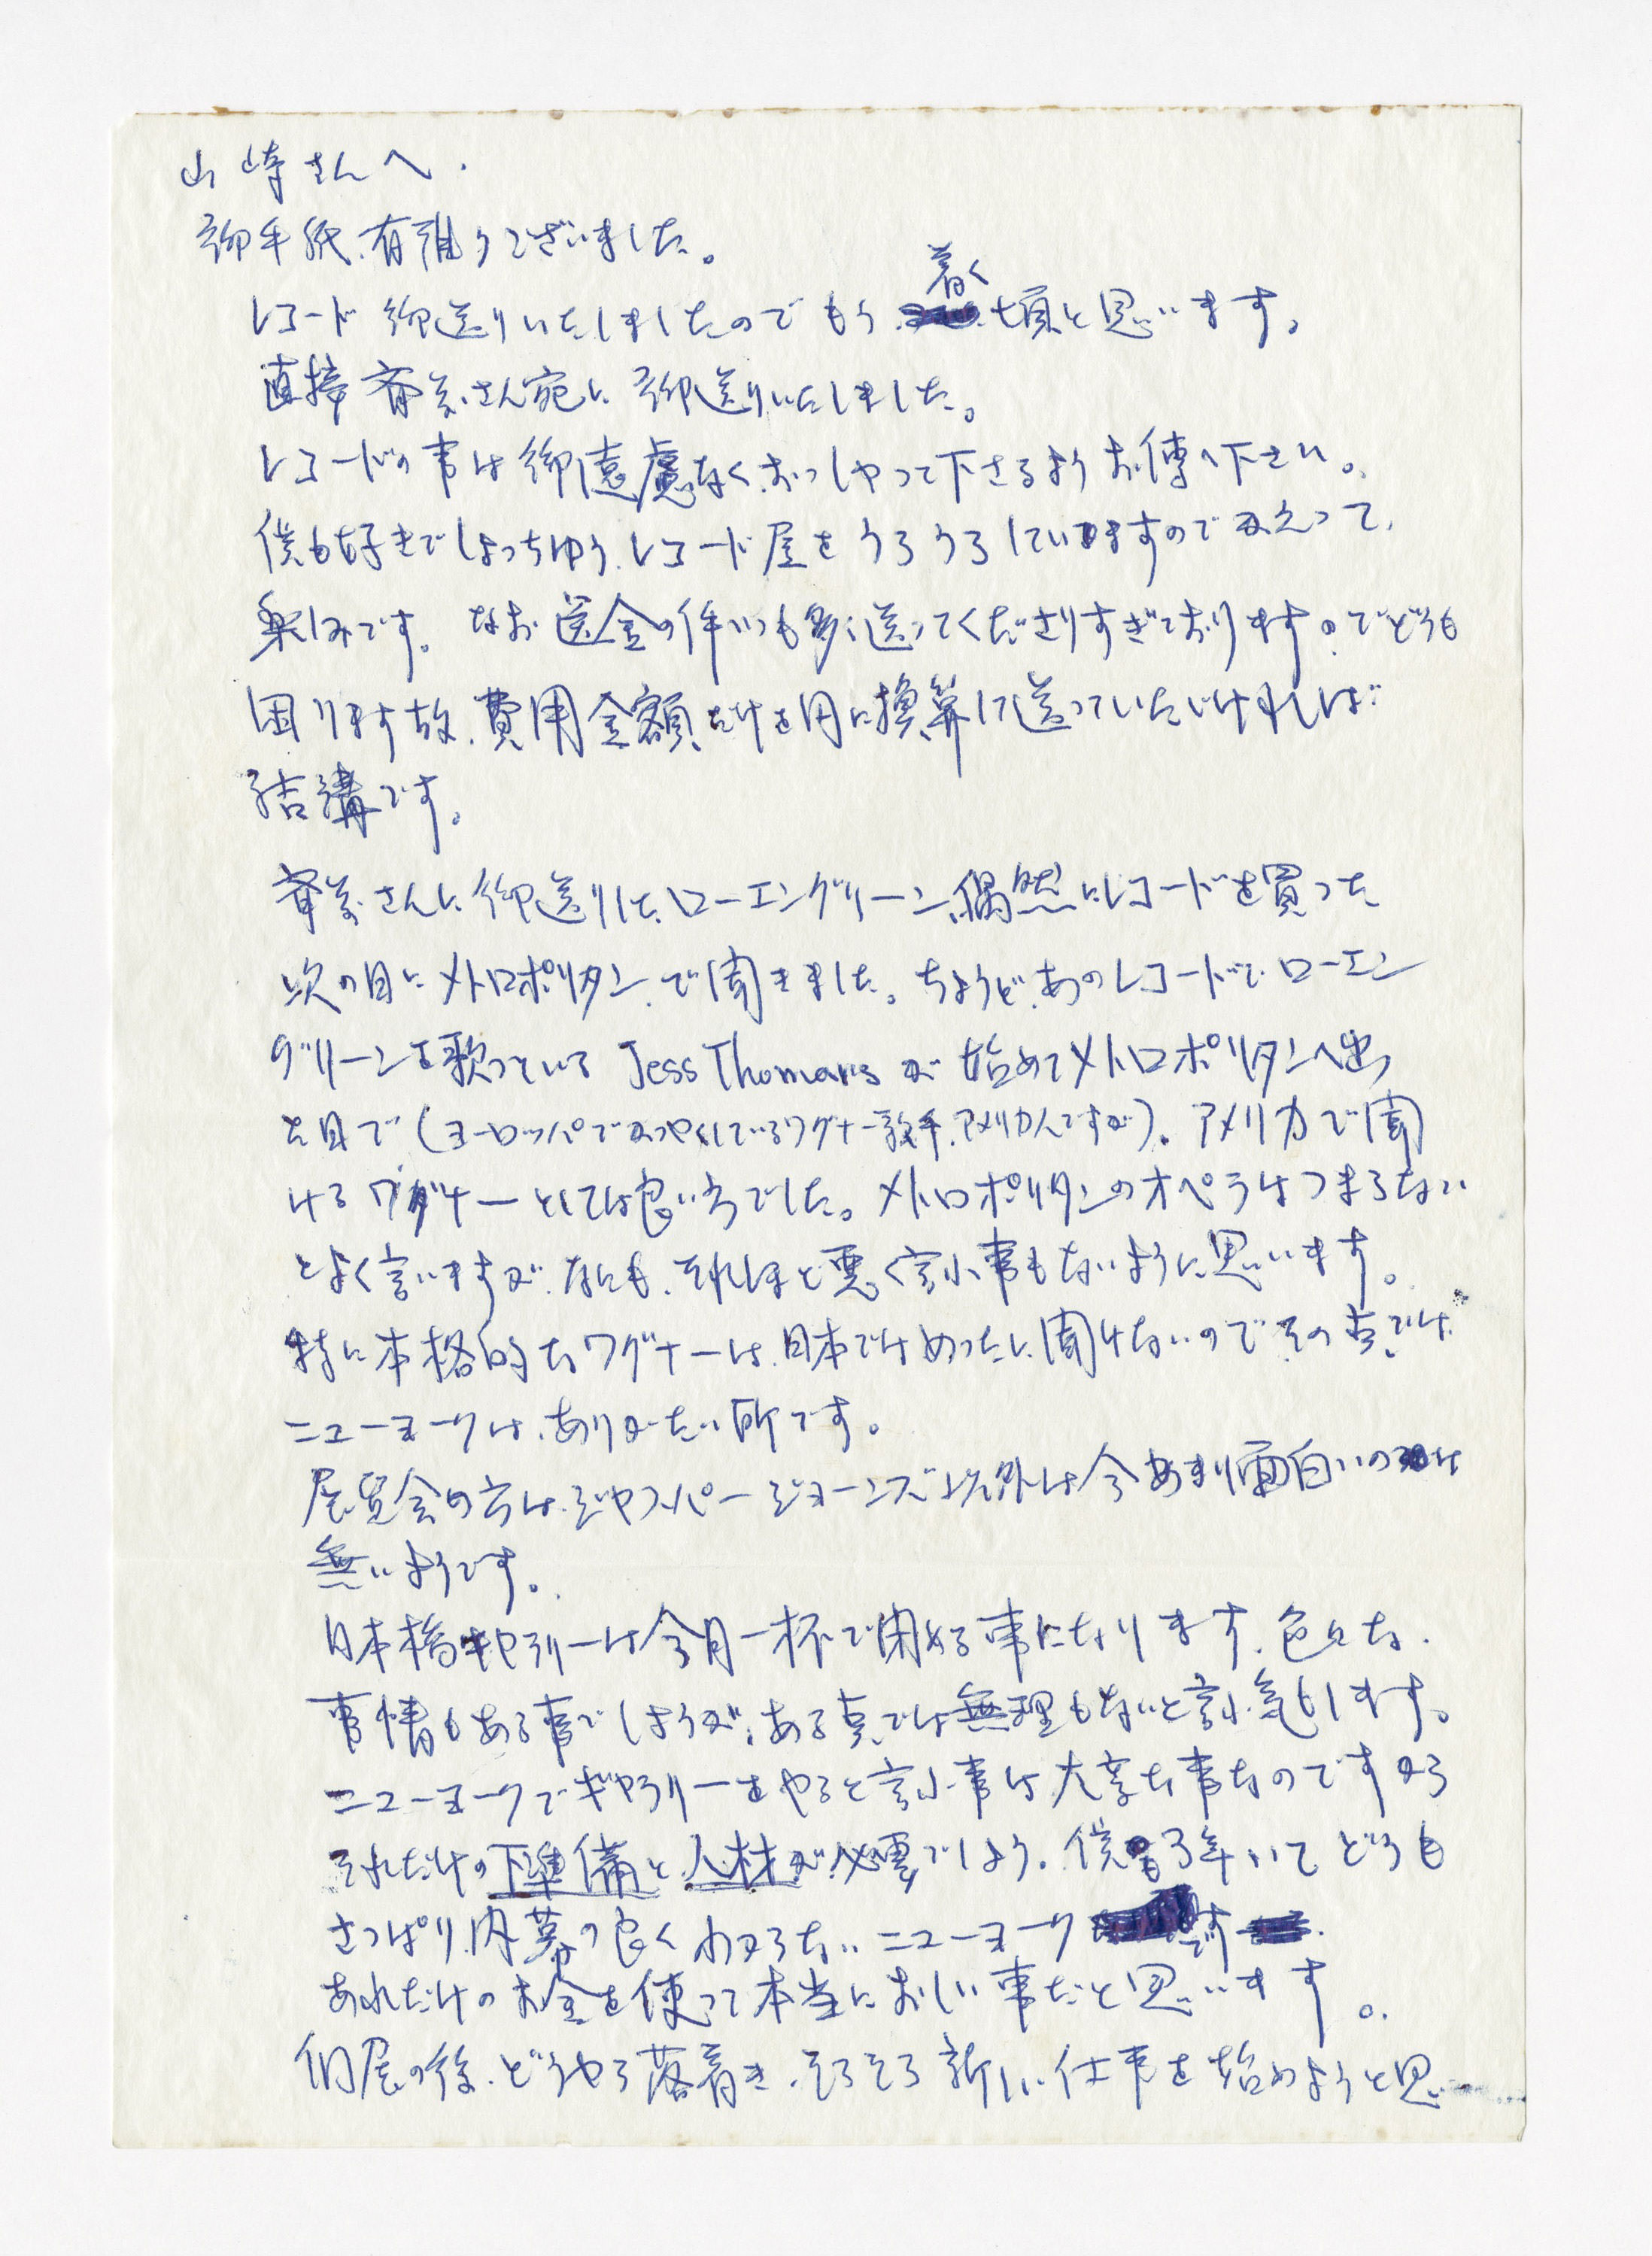 山崎さんへ.
御手紙、有難うございました。
レコード御送りいたしましたのでもう着く頃と思います。
直接斉藤さん宛に御送りいたしました。
レコードの事は御遠慮なくおっしゃって下さるようお傳へ下さい。
僕も好きでしょっちゆうレコード屋をうろうろしていますのでかえって、
楽しみです。なお送金の件いつも多く送ってくださりすぎておりますのでどうも
困ります故、費用金額だけを円に換算して送っていただければ
結講です。
斉藤さんに御送りしたローエングリーン、偶然にレコードを買った
次の日にメトロポリタンで聞きました。ちょうどあのレコードでローエン
グリーンを歌っている Jess Thomas が始めてメトロポリタンへ出
た日で(ヨーロッパでかつやくしているワグナー歌手、アメリカ人ですが)。アメリカで聞
けるワグナーとしては良い方でした。メトロポリタンのオペラはつまらない
とよく言いますが、なにも、それほど悪く言ふ事もないように思います。
特に本格的なワグナーは、日本ではめったに聞けないのでその点では
ニューヨークは、ありがたい所です。
展覧会の方は、ジャスパージョーンズ以外は今あまり面白いのは
無いようです。
日本橋ギャラリーは今月一杯で閉める事になります、色々な
事情もある事でしょうが、ある点では無理もないと言ふ気もします。
ニューヨークでギャラリーをやると言ふ事は大変な事なのですから
それだけの下準備と人材が必要でしょう。僕も3年いてどうも
さっぱり内幕の良くわからないニューヨークです
あれだけのお金を使って本当におしい事だと思います。
個展の後、どうやら落着き、そろそろ新しい仕事を始めようと思